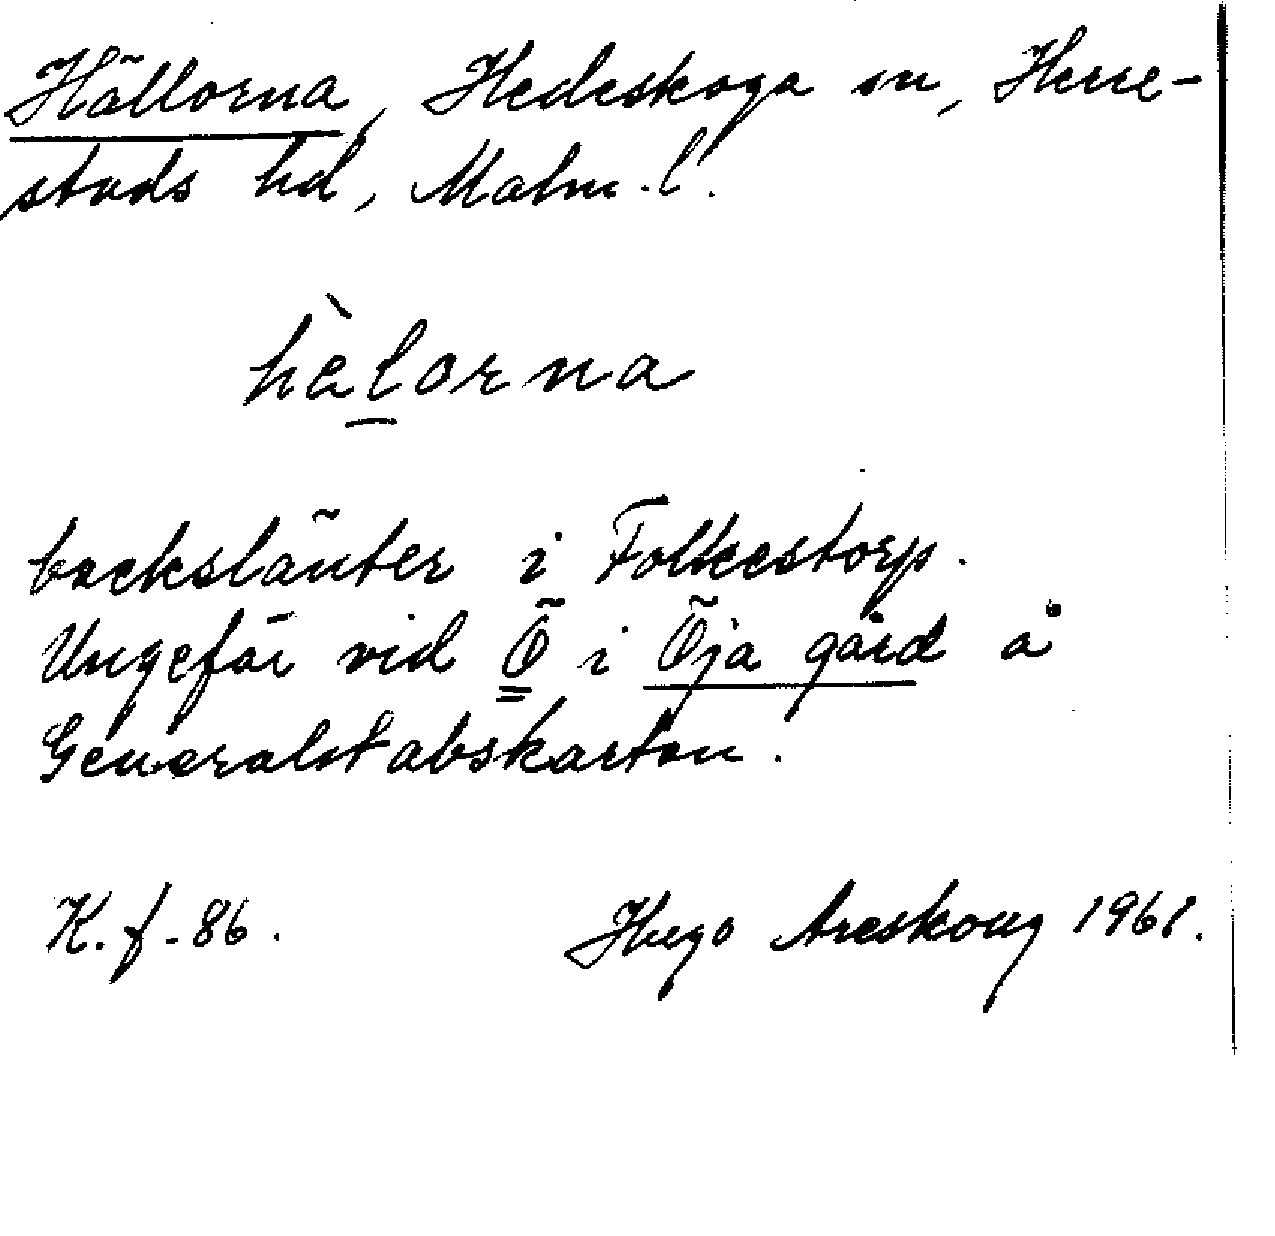 Hällorna, Hedeskoga sn, Herre-
stads hd, Malm. l.
hèl̠orna
backslänter i Folkestorp.
Ungefär vid Ö i Öja gård å
Generalstabskartan.
K.f. 86.
Hugo Areskoug 1961.